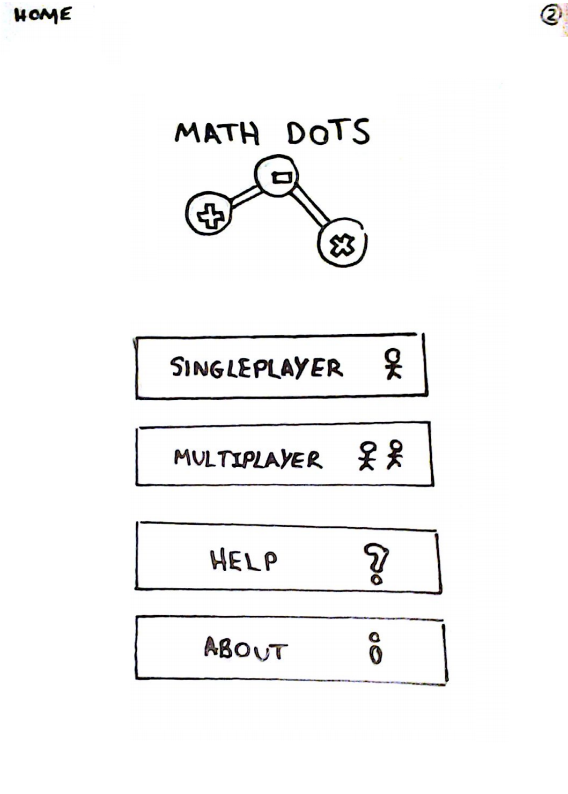 HOME
②
MATH DOTS
SINGLEPLAYER
MULTIPLAYER
HELP ?
ABOUT i